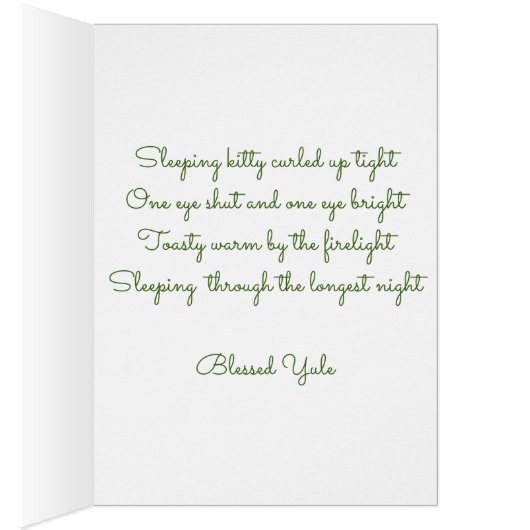 Sleeping kitty curled up tight
One eye shut and one eye bright
Toasty warm by the firelight
Sleeping through the longest night
Blessed Yule